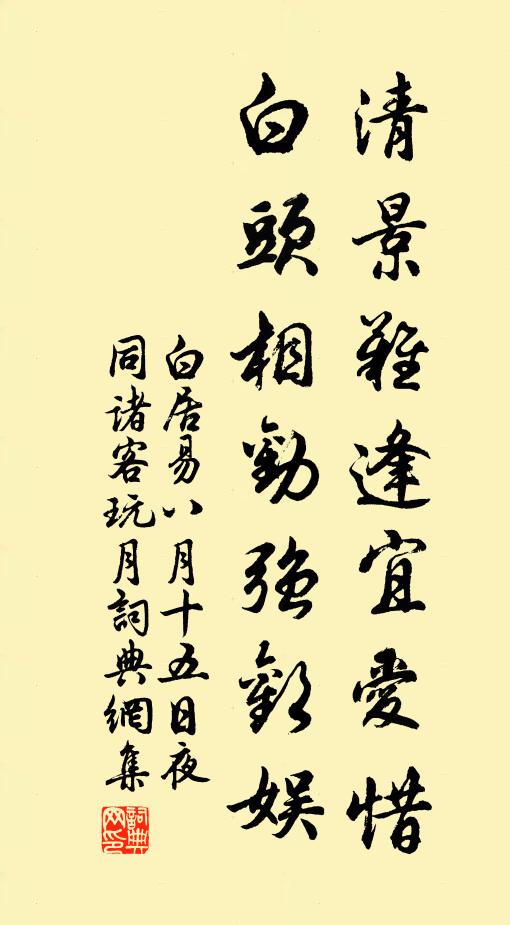 清景難逢宜愛惜
白頭相勸強歡娛
白居易八月十五日夜
同諸客玩月詞典網集
詞典
网印